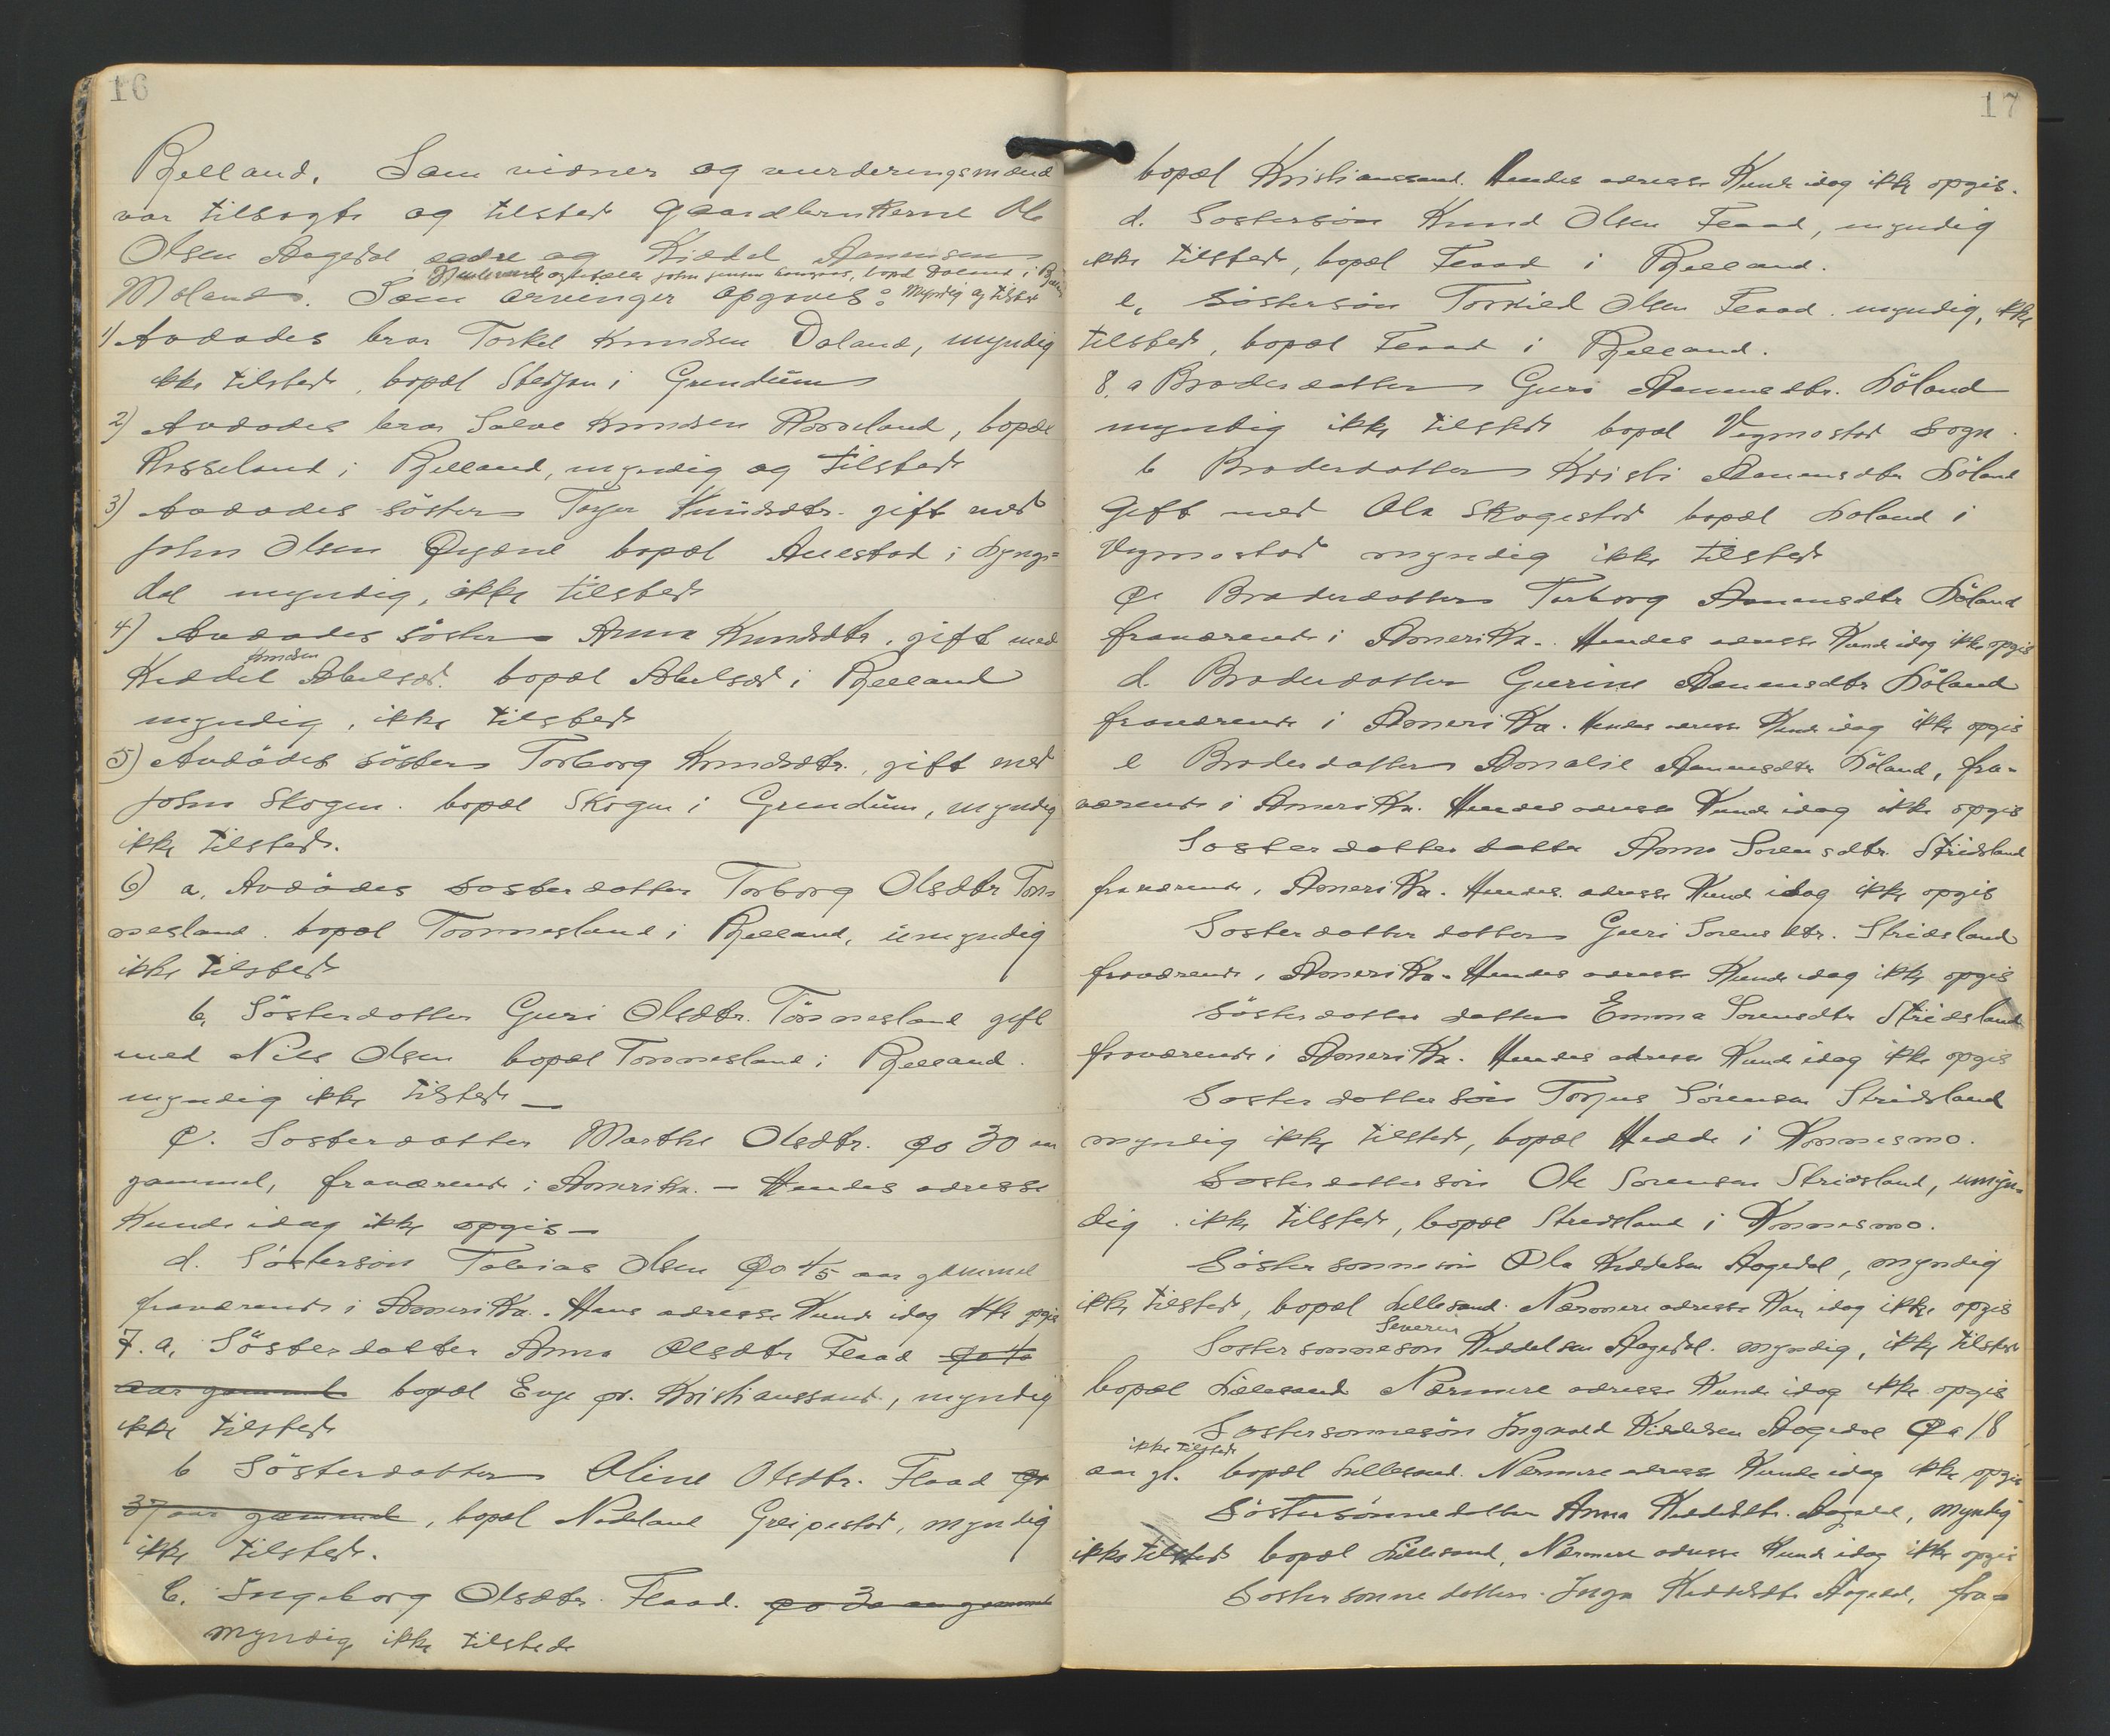 16
Bjelland. Som vidner og vurderingsmænd
var tilsagte og tilstede gaardbrukerne Ole
Olsen Aagedal ældre og Kiddel Aanensen
Gjenlevende egtefælle John Jensen bopæl Daland i Bjelland
Moland. Som arvinger opgaves: Myndig og tilstede
1) Avdødes bror Torkel Knudsen Daland, myndig
ikke tilstede, bopæl i Grendum
2) Avdødes bror Salve Knudsen Rosseland, bopæl
Rosseland i Bjelland, myndig og tilstede
3) Avdødes söster Torjer Knudsdtr. gift med
John Olsen Öygne bopæl Auestad i Lyng-
dal myndig, ikke tilstede
4) Avdødes söster Anna Knudsdtr, gift med
Knudsen
Keddel Abelsæt. bopæl Abelsæt i Bjelland
myndig, ikke tilstede
5) Avdødes söster Torborg Knudsdtr., gift med
John Skogen. bopæl Skogen i Grendum, myndig
ikke tilstede.
6) a. Avdødes søsterdatter Torborg Olsdtr Tøn-
nesland. bopæl Tønnesland i Bjelland, umyndig
ikke tilstede
b. Søsterdatter Guri Olsdtr. Tønnesland gift
med Nils Olsen bopæl Tønnesland i Bjelland.
myndig ikke tilstede —
c. Søsterdatter Marthe Olsdtr. ca 30 aar
gammel, fraværende i Amerika. — Hendes adresse
kunde idag ikke opgis —
d. Søstersøn Tobias Olsen ca 45 aar gammel
fraværende i Amerika. Hans adresse kunde idag ikke opgis
7. a. Søsterdatter Anna Olsdtr Flaad ca 40
aar gammel bopæl Evje pr. Kristianssand, myndig
ikke tilstede
b Søsterdatter Oline Olsdtr. Flaad ca
37 aar gammel, bopæl Nodeland Greipestad, myndig
ikke tilstede.
C. Ingeborg Olsdtr. Flaad. ca 30 aar gammel
myndig ikke tilstede
17
bopæl Kristianssand. Hendes adresse kunde idag ikke opgis.
d. Søstersøn Knud Olsen Flaad, myndig
ikke tilstede, bopæl Flaad i Bjelland.
e, Søstersøn Torkild Olsen Flaad. myndig, ikke
tilstede, bopæl Flaad i Bjelland.
8. a Broderdatter Guri Aanensdtr. Løland
myndig ikke tilstede bopæl Vegmostad sogn.
b Broderdatter Kristi Aanensdtr Løland
Gift med Ola Skogestad bopæl Løland i
Vegmostad myndig ikke tilstede
c. Broderdatter Torborg Aanensdtr Løland
fraværende i Amerika. Hendes adresse kunde idag ikke opgis
d. Broderdatter Gurine Aanensdtr Løland
fraværende i Amerika. Hendes adresse kunde idag ikke opgis
e Broderdatter Amalie Aanensdtr Løland, fra-
værende i Amerika. Hendes adresse kunde idag ikke opgis
Søsterdatter datter Anna Sørensdtr. Stridsland
fraværende i Amerika. Hendes adresse kunde idag ikke opgis
Søsterdatter datter Guri Sørensdtr. Stridsland
fraværende i Amerika. Hendes adresse kunde idag ikke opgis
Søsterdatter datter Emma Sørensdtr Stridsland
fraværende i Amerika. Hendes adresse kunde idag ikke opgis
Søsterdatter søn Torjus Sørensen Stridsland
myndig ikke tilstede, bopæl Hedde i Konnesmo.
Søsterdatter søn Ole Sørensen Stridsland, umyn-
dig ikke tilstede, bopæl Stridsland i Konnesmo.
Søstersønnesøn Ola Keddelsen Aagedal, myndig
ikke tilstede, bopæl Lillesand. Nærmere adresse kan idag ikke opgis
Severin
Søstersønnesøn Keddelsen Aagedal. myndig, ikke tilstede
bopæl Lillesand Nærmere adresse kunde idag ikke opgis
Søstersønnesøn Ingvald Keddelsen Aagedal Ca 18
ikke tilstede
aar gl. bopæl Lillesand. Nærmere adresse kunde idag ikke opgis
Søstersønnedatter Anna Keddelsdtr. Aagedal, myndig
ikke tilstede bopæl Lillesand, Nærmere adresse kunde idag ikke opgis
Søstersønnedatter Inga Keddelsdtr Aagedal, fra-